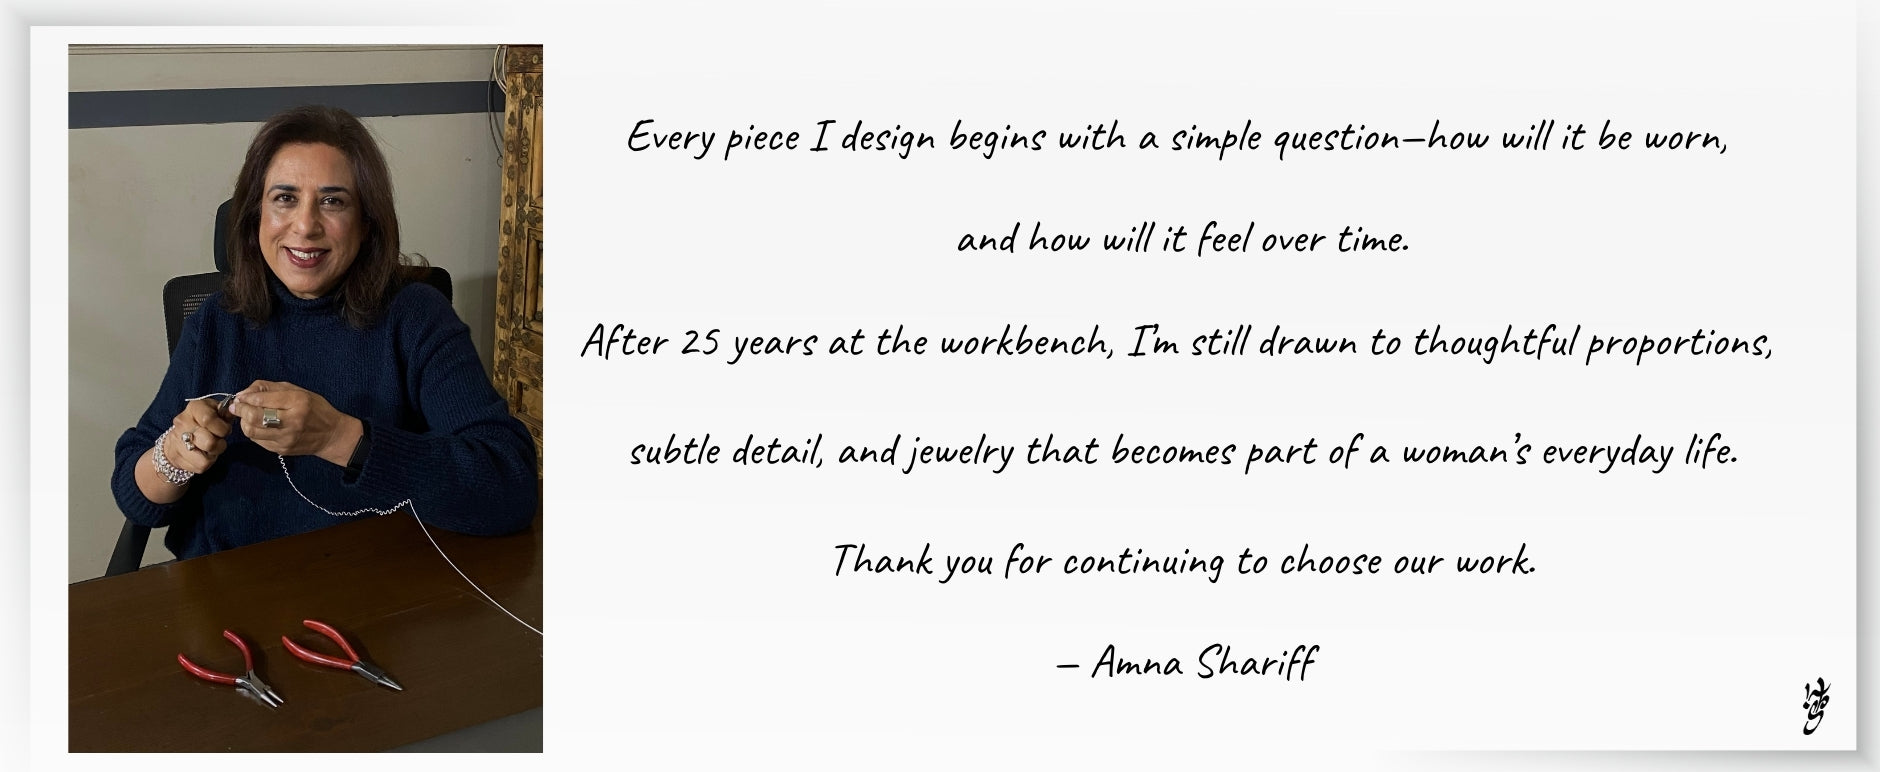 Every piece I design begins with a simple question—how will it be worn,
and how will it feel over time.
After 25 years at the workbench, I'm still drawn to thoughtful proportions,
subtle detail, and jewelry that becomes part of a woman's everyday life.
Thank you for continuing to choose our work.
– Amna Shariff